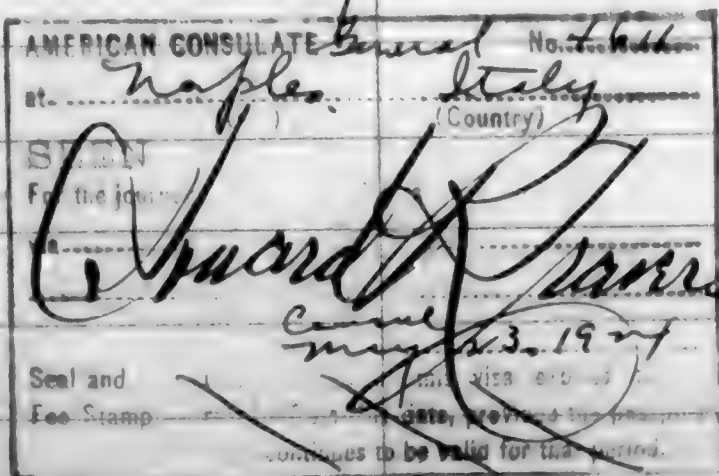 AMERICAN CONSULATE General No.
at Naples Italy
(Country)
SEEN
For the
Howard K Travers
Consul
May 23, 19
Seal and this visa
Fee Stamp date, provided the
continues to be valid for the period.